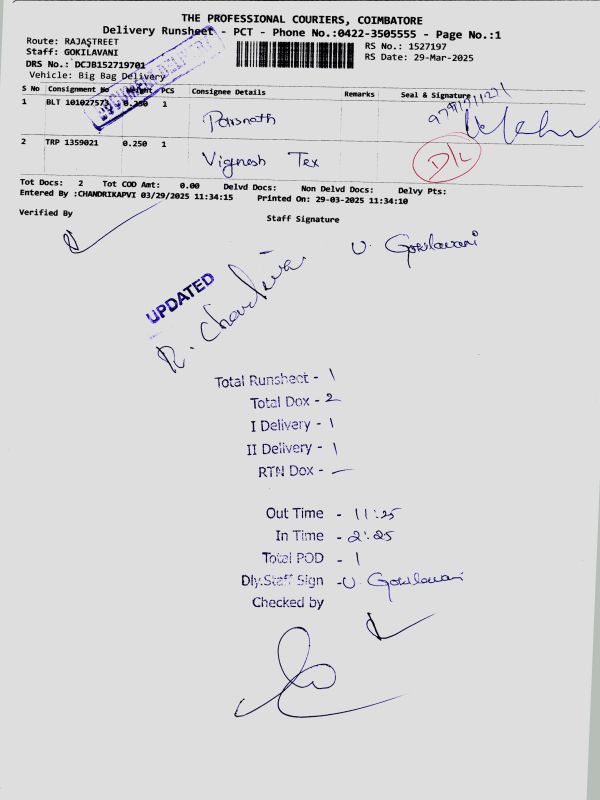 THE PROFESSIONAL COURIERS, COIMBATORE
Delivery Runsheet - PCT - Phone No.:0422-3505555 - Page No.:1
Route: RAJASTREET
Staff: GOKILAVANI
DRS No.: DCJB152719701
Vehicle: Big Bag Delivery
RS No.: 1527197
RS Date: 29-Mar-2025
S No Consignment No Weight PCS Consignee Details Remarks Seal & Signature
1 BLT 101027573 0.250 1
Parsnath
2 TRP 1359021 0.250 1
Vignesh Tex
D/L
Tot Docs: 2 Tot COD Amt: 0.00 Delvd Docs: Non Delvd Docs: Delvy Pts:
Entered By :CHANDRIKAPVI 03/29/2025 11:34:15 Printed On: 29-03-2025 11:34:10
Verified By
Staff Signature
U. Gokilavani
UPDATED
Total Runsheet - 1
Total Dox - 2
I Delivery - 1
II Delivery - 1
RTN Dox - —
Out Time - 11:25
In Time - 2:25
Total POD - 1
Dly.Staff Sign - U. Gokilavani
Checked by